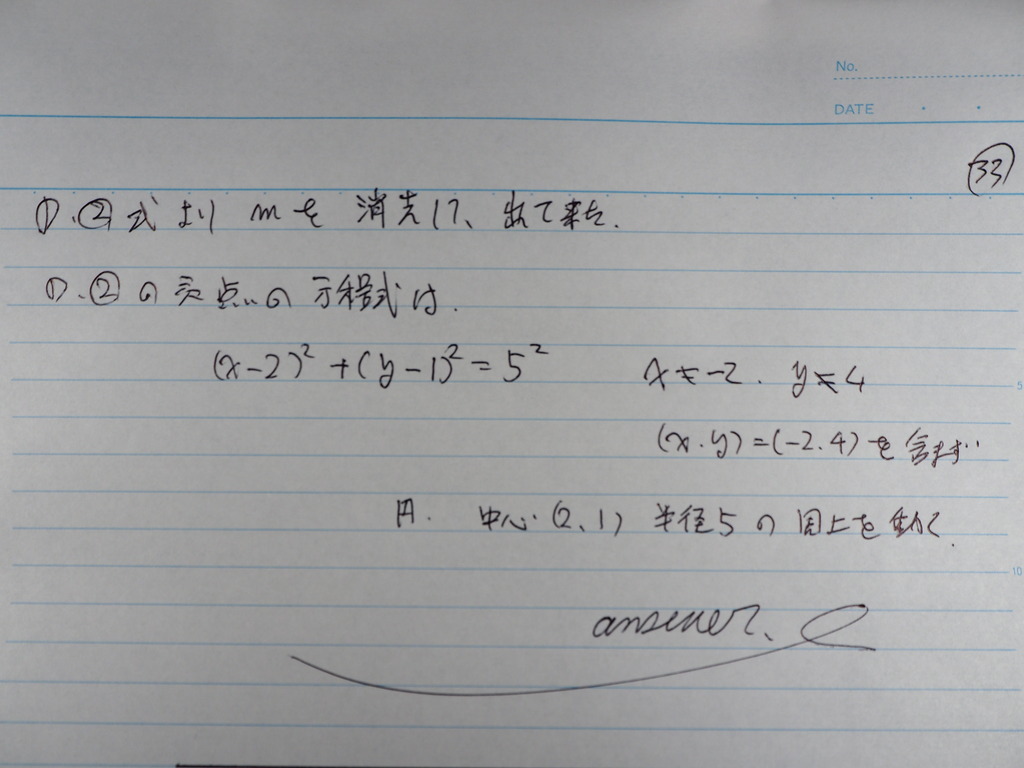 No.
DATE
33
①.②式より mを 消去して、出て来た.
①.②の交点の方程式は.
(x-2)²+(y-1)²=5² x≠-2. y≠4
5
(x.y)=(-2.4)を含まず
円. 中心(2、1) 半径5の周上を動く.
10
answer.